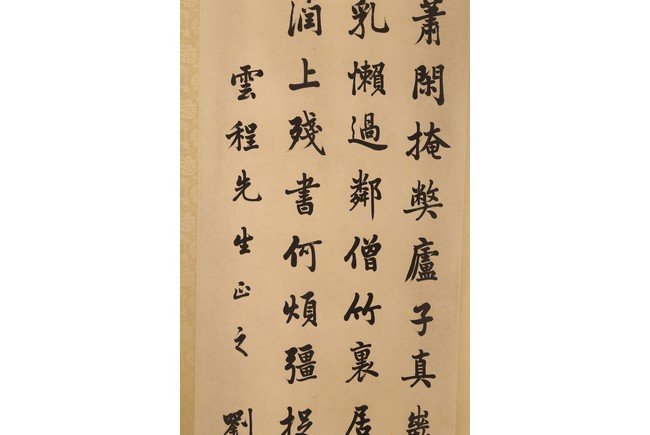 蕭閑掩弊廬子真
乳懶過鄰僧竹裏居
潤上殘書何煩彊投
雲程先生正之 劉